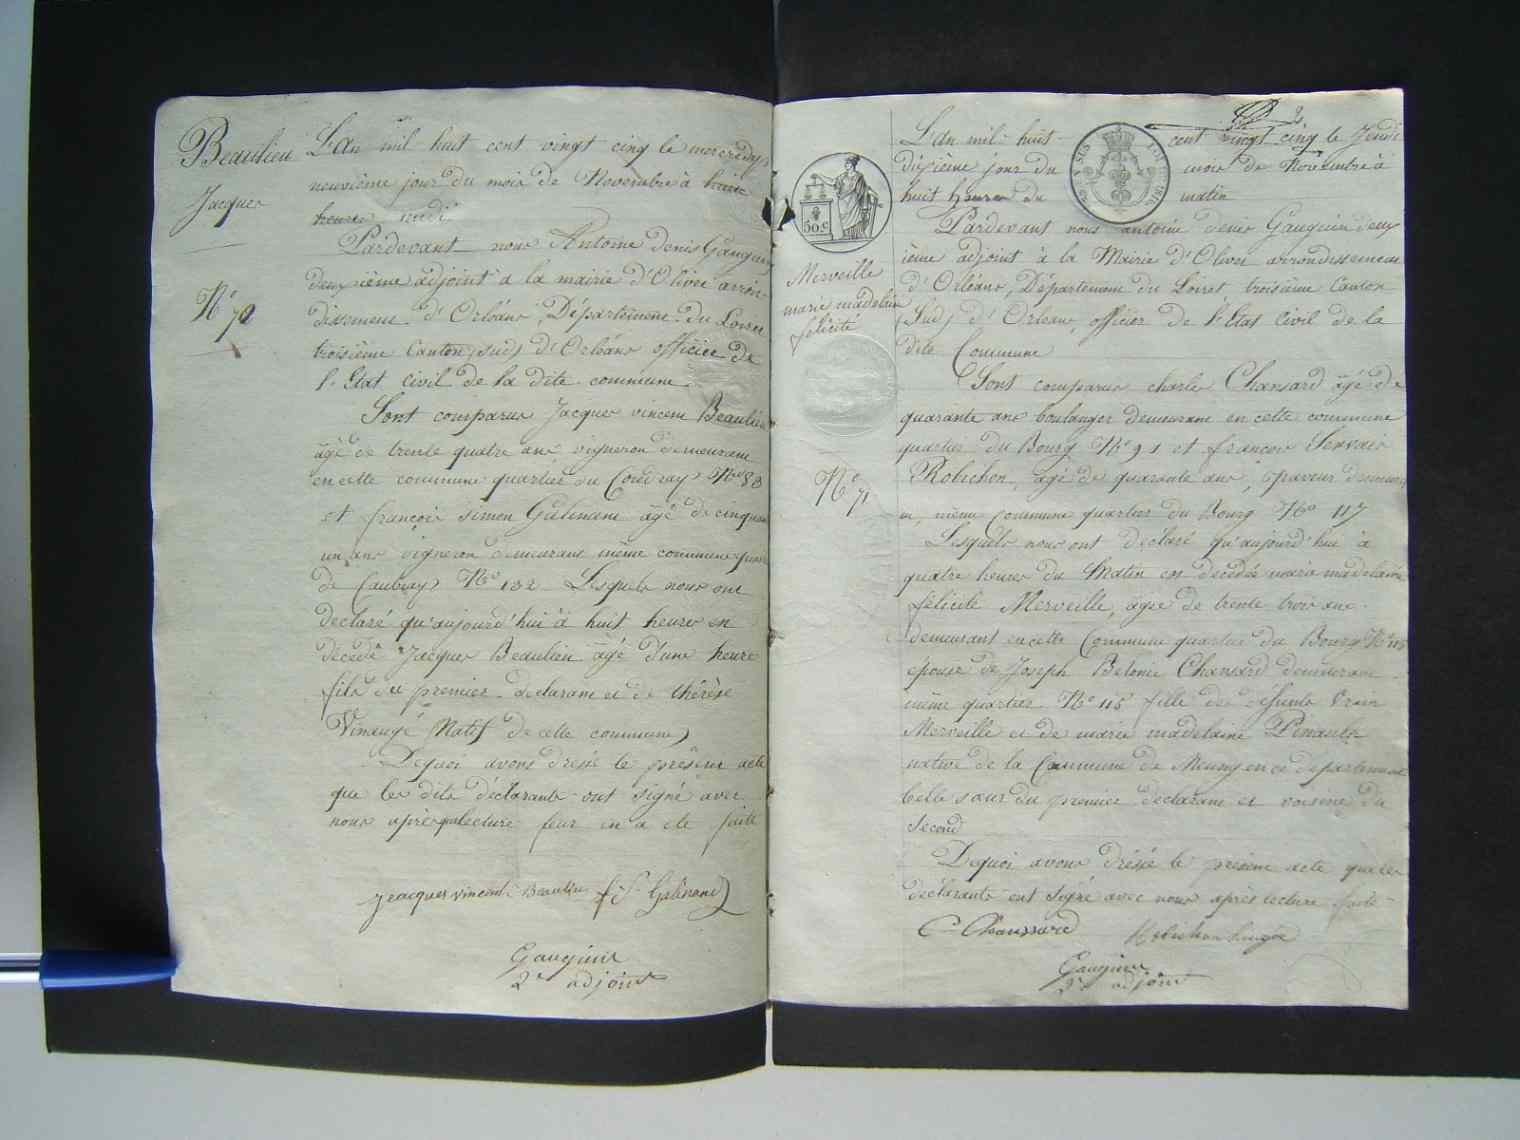 Beaulieu
Jacques
N° 70
L'an mil huit cent vingt cinq le mercredy
neuvième jour du mois de Novembre à
heures midi
Pardevant nous Antoine denis Gauguin
deuxième adjoint a la mairie d'Olivet arron-
dissement d'Orléans, Département du Loiret
troisième Canton (sud) d'Orléans officier de
l'Etat civil de la dite commune
Sont comparus Jacques vincent Beaulieu
âgé de trente quatre ans vigneron demeurant
en cette commune quartier du Coudray N° 83
et françois simon Galinand âgé de cinquante
un ans vigneron demeurant même commune quartier
de Caubray N° 132 Lesquels nous ont
declaré qu'aujourd'hui à huit heures est
décédé Jacques Beaulieu âgé d'une heure
fils du premier declarant et de thérèse
Vinaugé Natif de cette commune
Dequoi avons dréssé le présent acte
que les dits déclarants ont signé avec
nous après lecture leur en a été faite
jeacques vincent Beaulieu f. S. Galinand
Gauguin
2e adjoint
2
50 c
Merveille
marie madelaine
félicité
N° 71
L'An mil huit cent vingt cinq le Jeudi
dixième jour du mois de Novembre à
huit heures du matin
Pardevant nous antoine denis Gauguin deux
ième adjoint à la Mairie d'Olivet arrondissement
d'Orléans, Département du Loiret troisième Canton
(Sud) d'Orléans, officier de l'Etat Civil de la
dite Commune
Sont comparus charles Chansard âgé de
quarante ans boulanger demeurant en cette commune
quartier du Bourg N° 91 et françois Servais
Robichon, âgé de quarante ans, paveur demeurant
même commune quartier du Bourg N° 117
Lesquels nous ont déclaré qu'aujourd'hui à
quatre heures du Matin est décédée marie madelaine
félicité Merveille, âgée de trente trois ans
demeurant en cette Commune quartier du Bourg N° 115
épouse de Joseph Chansard demeurant
même quartier N° 115 fille de défunt Vrain
Merveille et de marie madelaine Pinault
native de la Commune de Meung en ce departement
belle soeur du premier déclarant et voisine du
second
Dequoi avons dréssé le présent acte que les
déclarants ont signé avec nous après lecture faite
C. Chanssard Robichon
Gauguin
2e adjoint